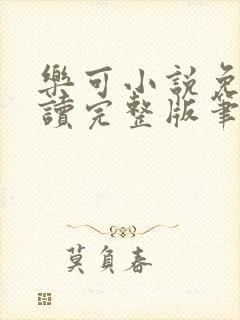 樂可小說免
讀完整版筆
莫負春